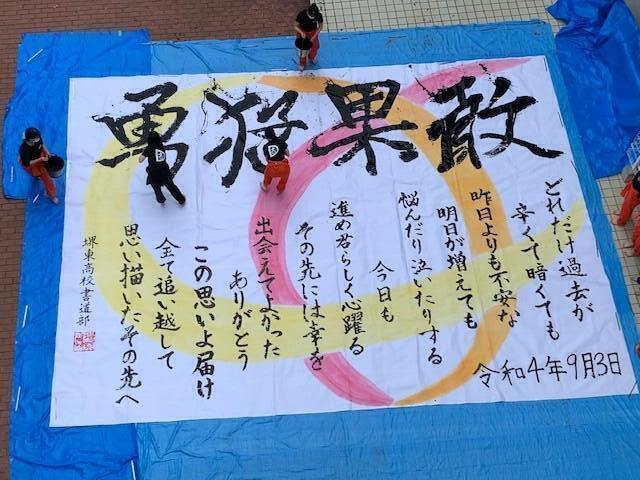 勇猛果敢
どれだけ過去が
辛くて暗くても
昨日よりも不安な
明日が増えても
悩んだり泣いたりする
今日も
進め君らしく心躍る
その先には幸を
出会えてよかった
ありがとう
この思いよ届け
全て追い越して
思い描いたその先へ
堺東高校書道部
令和4年9月3日